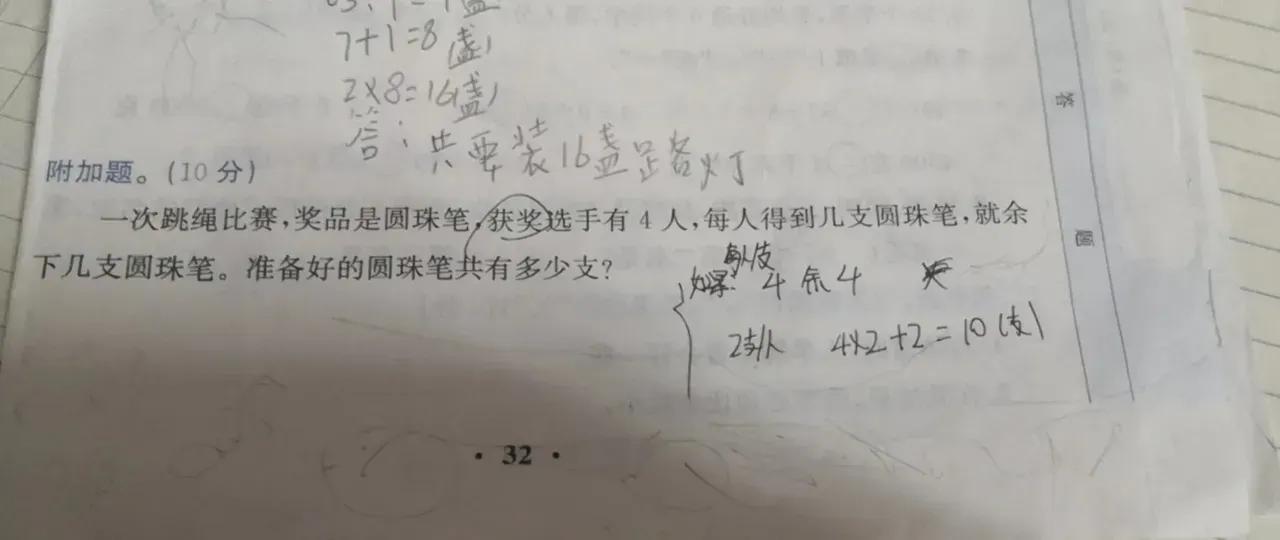 7+1=8(盏)
2×8=16(盏)
答:共要装16盏路灯
附加题。(10分)
一次跳绳比赛,奖品是圆珠笔,获奖选手有4人,每人得到几支圆珠笔,就余
下几支圆珠笔。准备好的圆珠笔共有多少支?
如果: 4 余4
2支/人 4×2+2=10(支)
答
题
· 32 ·